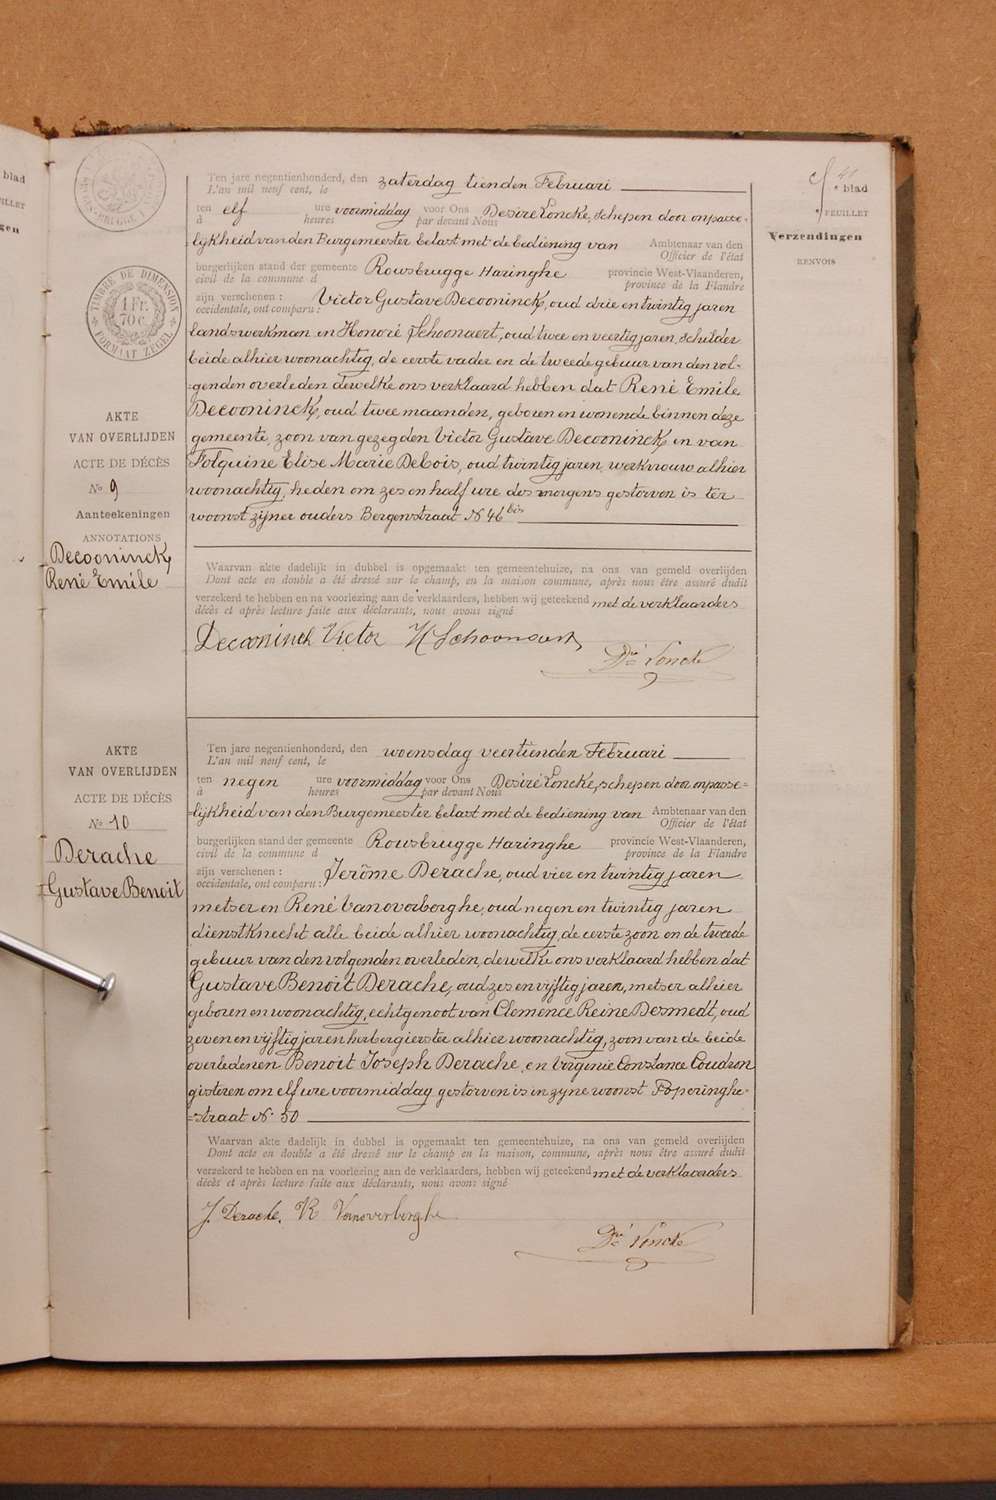 blad
FEUILLET
Verzendingen
RENVOIS
TIMBRE DE DIMENSION
1 Fr.
70 c.
FORMAAT ZEGEL
AKTE
VAN OVERLIJDEN
ACTE DE DÉCÈS
No 9
Aanteekeningen
ANNOTATIONS
Decooninck,
René Emile
Ten jare negentienhonderd, den zaterdag tienden Februari
L'an mil neuf cent, le
ten elf ure voormiddag voor Ons Desiré Loncke, schepen door onpasse-
à heures par devant Nous
lijkheid van den Burgemeester belast met de bediening van Ambtenaar van den
Officier de l'état
burgerlijken stand der gemeente Rousbrugge Haringhe provincie West-Vlaanderen,
civil de la commune d province de la Flandre
zijn verschenen : Victor Gustave Decooninck, oud drie en twintig jaren
occidentale, ont comparu :
landswerkman en Honoré Schoonaert, oud twee en veertig jaren, schilder
beide alhier woonachtig, de eerste vader en de tweede gebuur van den vol-
-genden overleden dewelke ons verklaard hebben dat René Emile
Decooninck, oud twee maanden, geboren en wonende binnen deze
gemeente, zoon van gezegden Victor Gustave Decooninck en van
Folquine Elise Marie Debois, oud twintig jaren, werkvrouw alhier
woonachtig, heden om zes en half ure des morgens gestorven is ter
woonst zijner ouders Bergenstraat N 46 bis
Waarvan akte dadelijk in dubbel is opgemaakt ten gemeentehuize, na ons van gemeld overlijden
Dont acte en double a été dressé sur le champ, en la maison commune, après nous être assuré dudit
verzekerd te hebben en na voorlezing aan de verklaarders, hebben wij geteekend met de verklaarders
décès et après lecture faite aux déclarants, nous avons signé
Decooninck Victor H Schoonaert
Dré Loncke
AKTE
VAN OVERLIJDEN
ACTE DE DÉCÈS
No 10
Derache
Gustave Benoit
Ten jare negentienhonderd, den woensdag veertienden Februari
L'an mil neuf cent, le
ten negen ure voormiddag voor Ons Desiré Loncke, schepen door onpasse-
à heures par devant Nous
-lijkheid van den Burgemeester belast met de bediening van Ambtenaar van den
Officier de l'état
burgerlijken stand der gemeente Rousbrugge Haringhe provincie West-Vlaanderen,
civil de la commune d province de la Flandre
zijn verschenen : Jerôme Derache, oud vier en twintig jaren
occidentale, ont comparu :
metser en René Vanoverberghe, oud negen en twintig jaren
dienstknecht alle beide alhier woonachtig, de eerste zoon en de tweede
gebuur van den volgenden overleden, dewelke ons verklaard hebben dat
Gustave Benoit Derache, oud zes en vijftig jaren, metser alhier
geboren en woonachtig, echtgenoot van Clemence Reine Desmedt, oud
zeven en vijftig jaren herbergierster alhier woonachtig, zoon van de beide
overledenen Benoit Joseph Derache, en Virginie Constance Coudron
gisteren om elf ure voormiddag gestorven is in zijne woonst Poperinghe-
-straat N. 50
Waarvan akte dadelijk in dubbel is opgemaakt ten gemeentehuize, na ons van gemeld overlijden
Dont acte en double a été dressé sur le champ, en la maison, commune, après nous être assuré dudit
verzekerd te hebben en na voorlezing aan de verklaarders, hebben wij geteekend met de verklaarders
décès et après lecture faite aux déclarants, nous avons signé
J. Derache. R Vanoverberghe
Dré Loncke